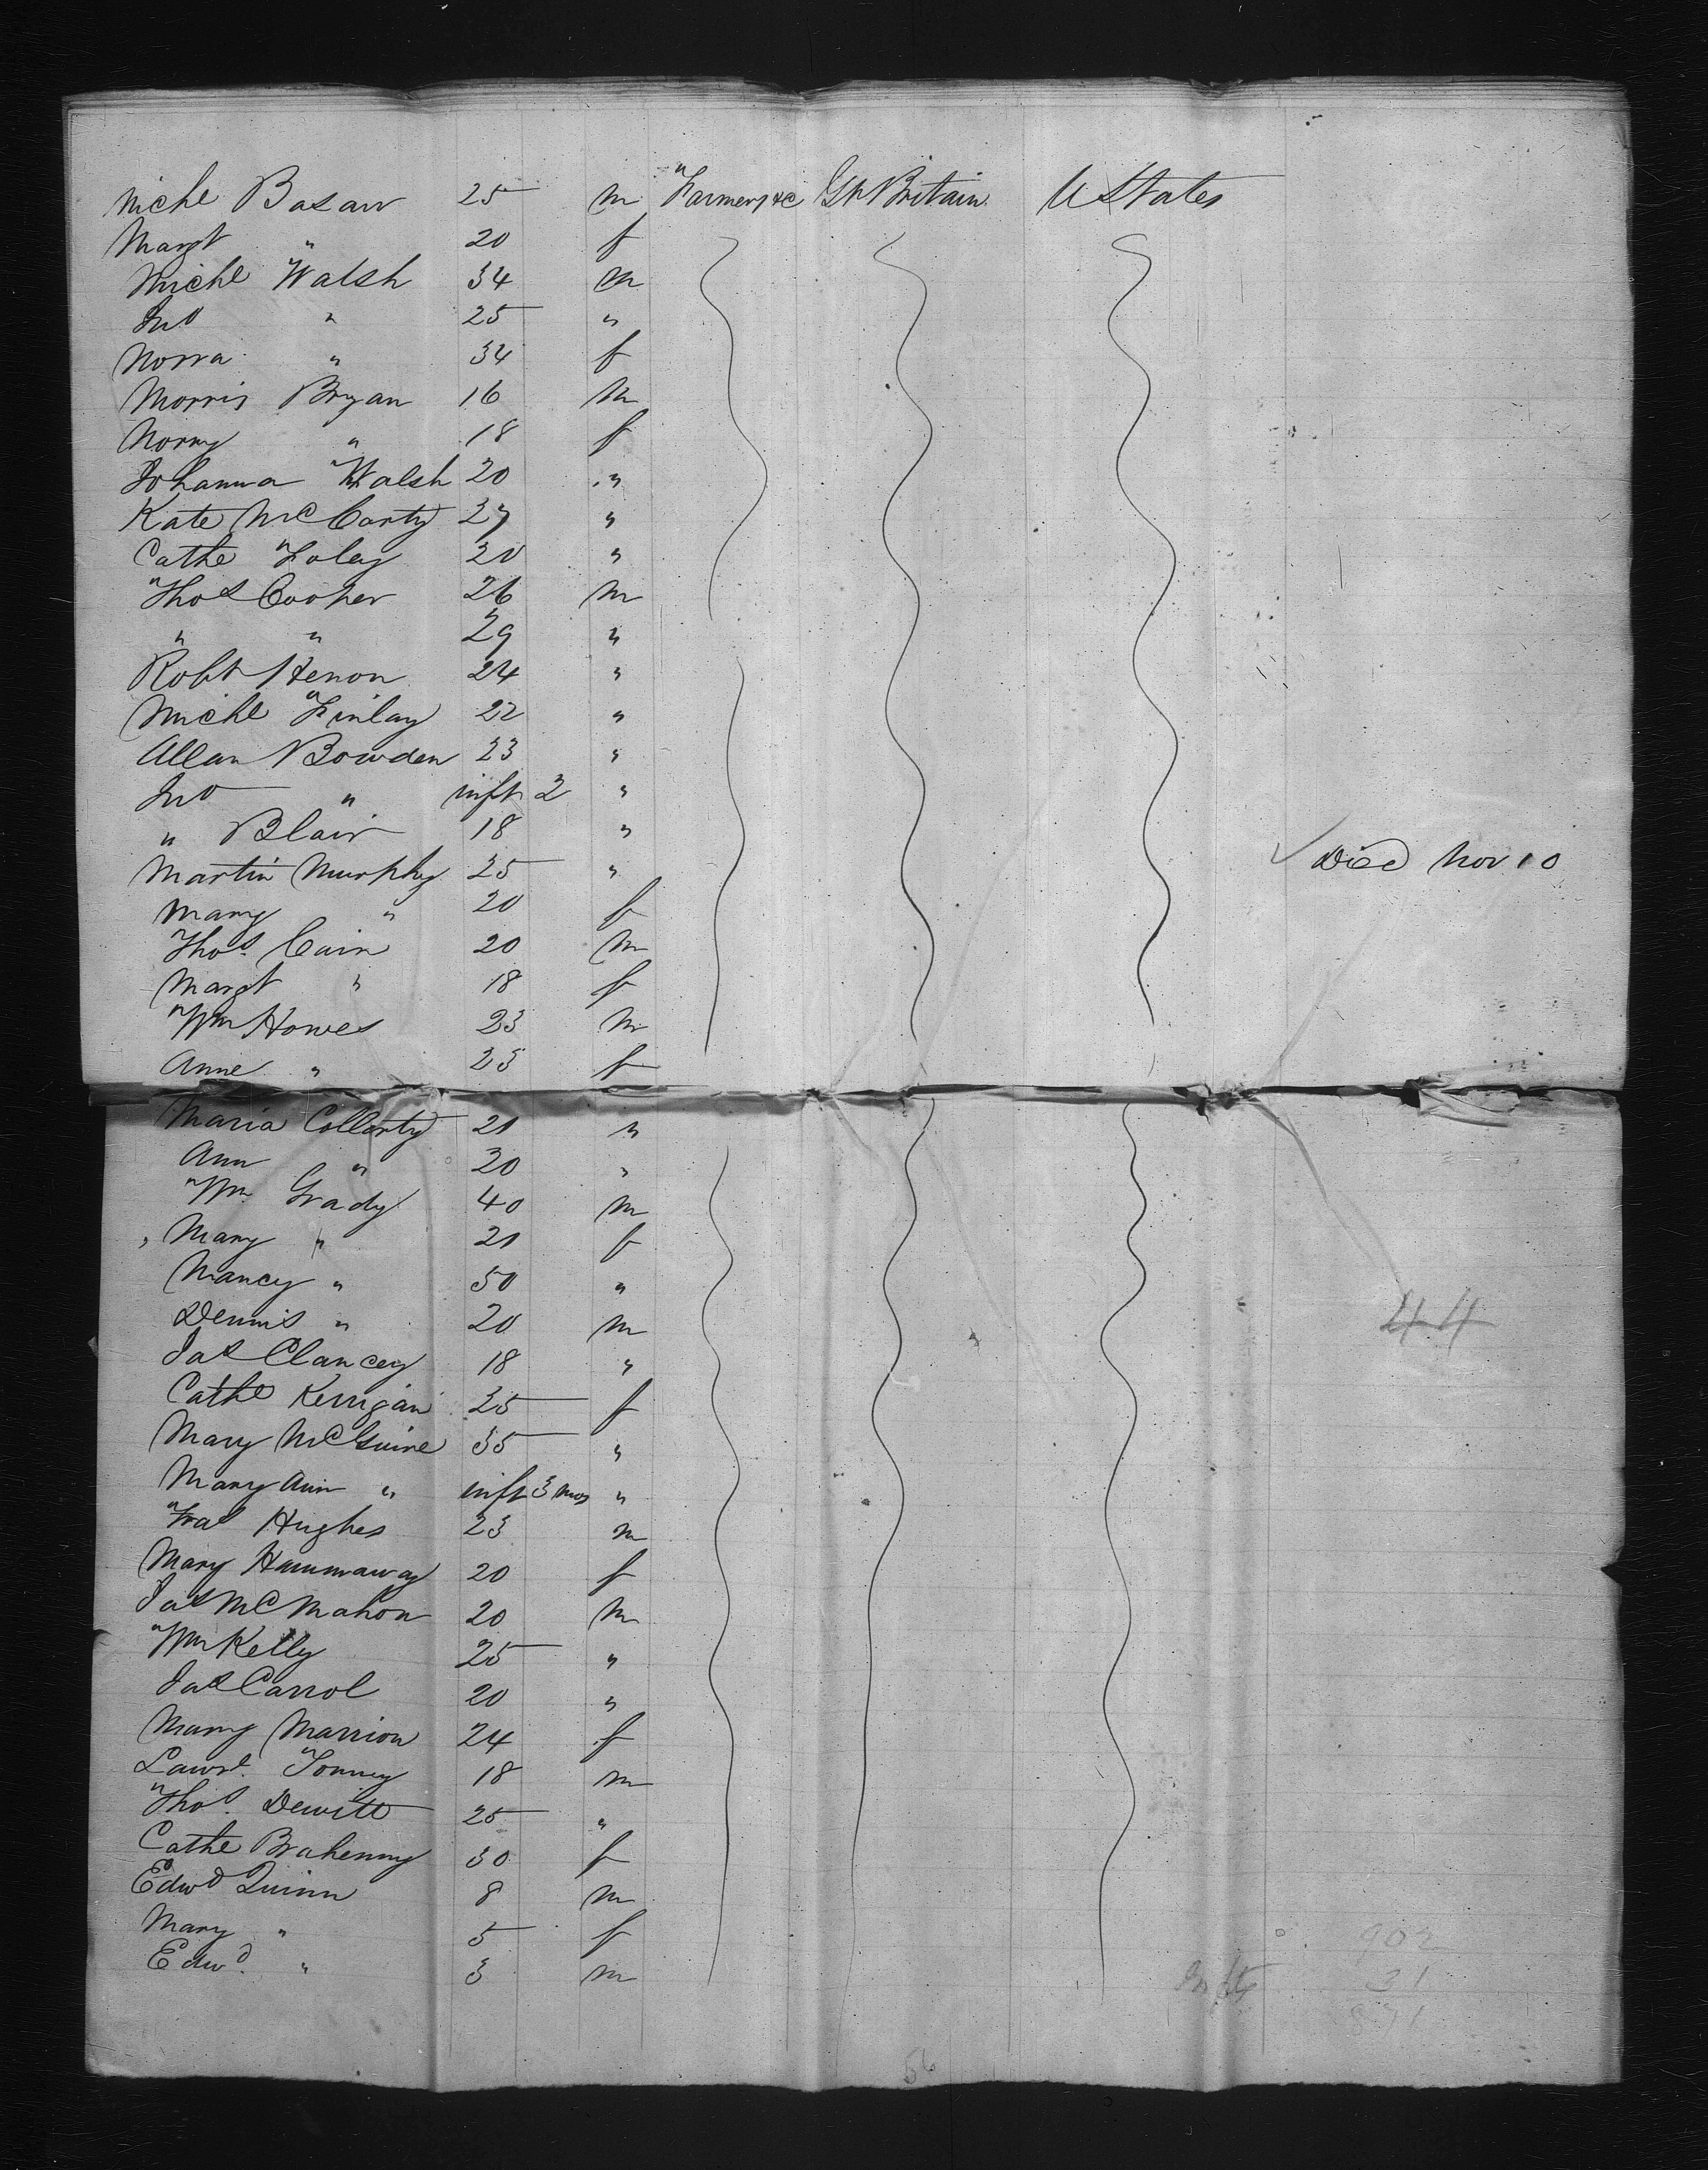 Michl Basaw 25 m Farmers &c Gt Britain U States
Margt " 20 f
Michl Walsh 34 m
Jno " 25 "
Norra " 34 f
Morris Bryan 16 m
Norry " 18 f
Johanna Walsh 20 "
Kate McCarty 27 "
Cathe Foley 20 "
Thos Cooper 26 m
" " 29 "
Robt Henon 24 "
Michl Finlay 22 "
Allan Bowden 23 "
Jno " inft 2 "
" Blair 18 "
Martin Murphy 25 " Died Nov 10
Mary " 20 f
Thos. Cain 20 m
Margt " 18 f
Wm Howes 23 m
Anne " 23 f
Maria Collorty 21 "
Ann " 30 "
Wm Grady 40 m
Mary " 21 f
Nancy " 50 "
Dennis " 20 m 44
Jas Clancey 18 "
Cathe Kerrigan 25 f
Mary McGuire 35 "
Mary Ann " inft 3 mos "
Fras Hughes 23 m
Mary Hammaway 20 f
Jas McMahon 20 m
Wm Kelly 25 "
Jas Carrol 20 "
Mary Marrion 24 f
Lawre. Tonney 18 m
Thos. Dewitt 25 "
Cathe Brahenny 30 f
Edwd Quinn 8 m
Mary " 5 f 902
Edwd. " 3 m Infts 31
871